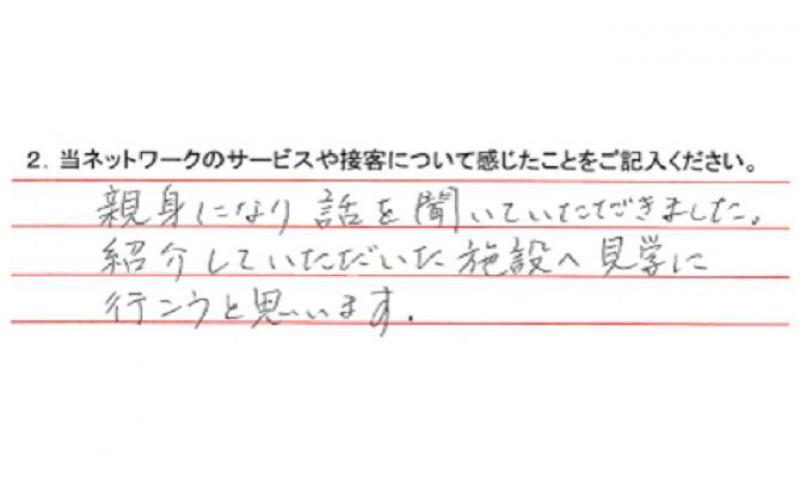 2. 当ネットワークのサービスや接客について感じたことをご記入ください。
親身になり話を聞いていただきました。
紹介していただいた施設へ見学に
行こうと思います.